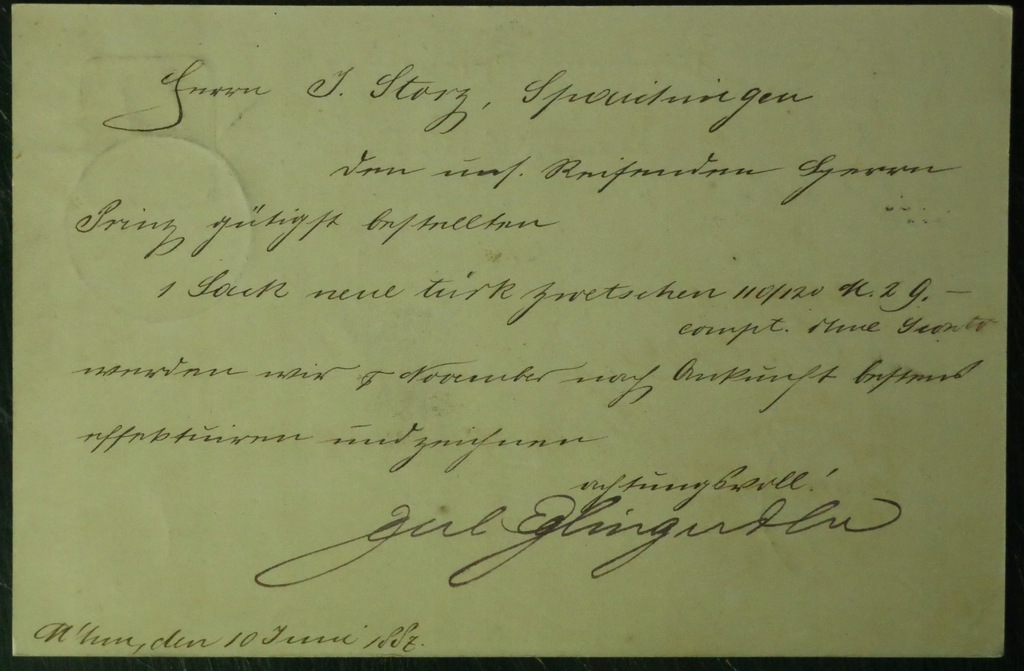 Herrn J. Storz, Spaichingen
den uns. Reisenden Herrn
Prinz gütigst bestellten
1 Sack neue türk Zwetschen 110/120 M. 29.—
compt. ohne Sconto
werden wir p November nach Ankunft bestens
effektuiren und zeichnen
achtungsvoll!
Ulm, den 10 Juni 1887.